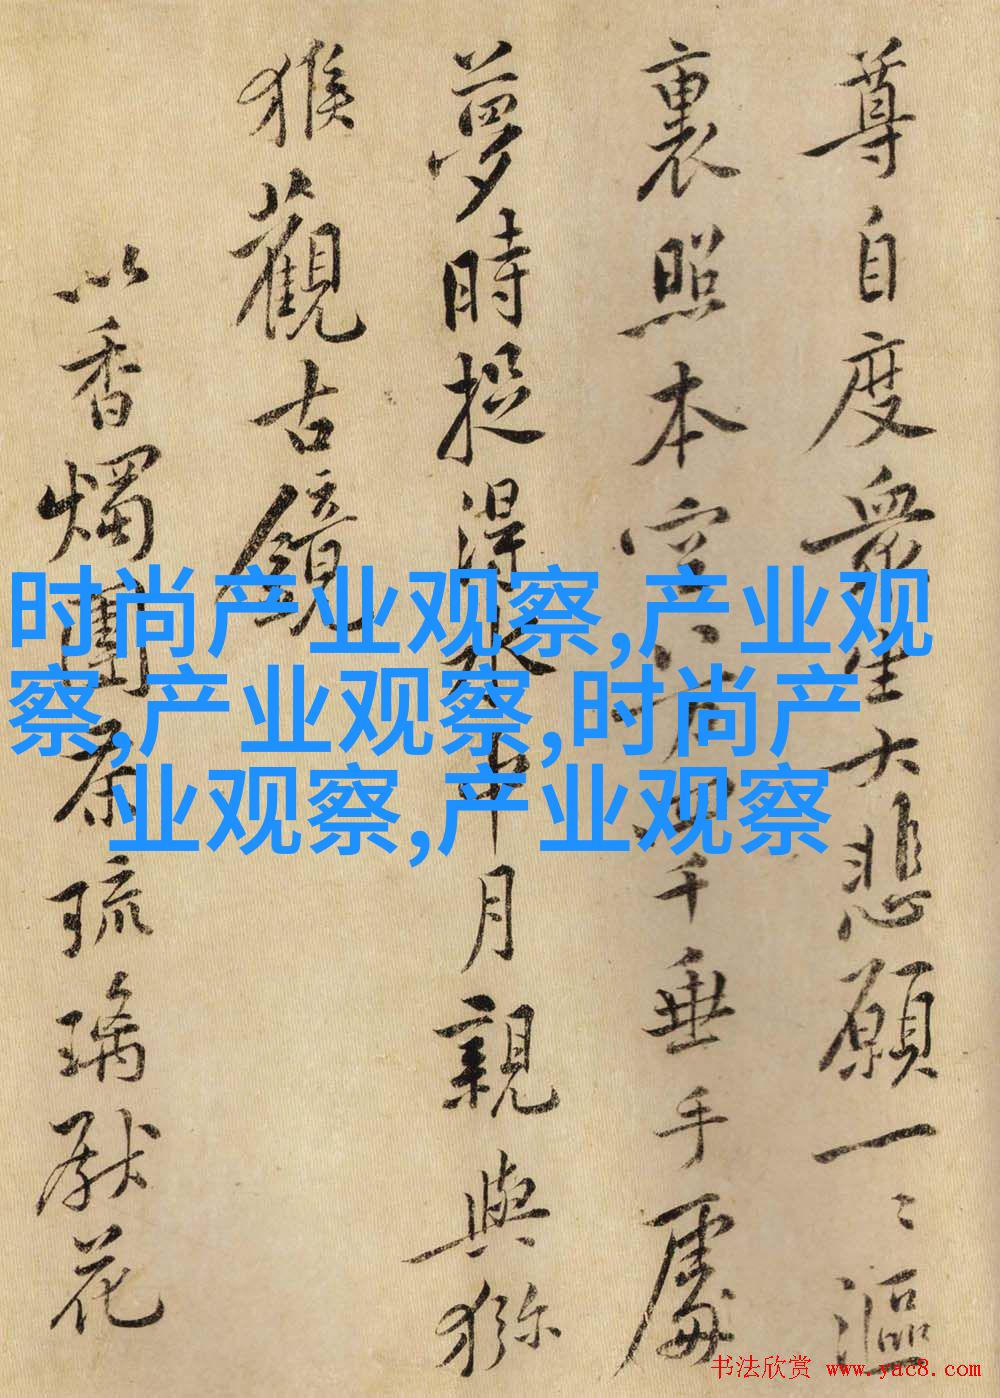 尊自度衆生大悲願一〻漚
裏照本空八万四千垂手處
夢時捉得水中月親與獼
猴觀古鏡
以香燭團茶琉璃獻花
时尚产业观察,产业观
察,产业观察,时尚产
业观察,产业观察
书法欣赏 www.yac8.com